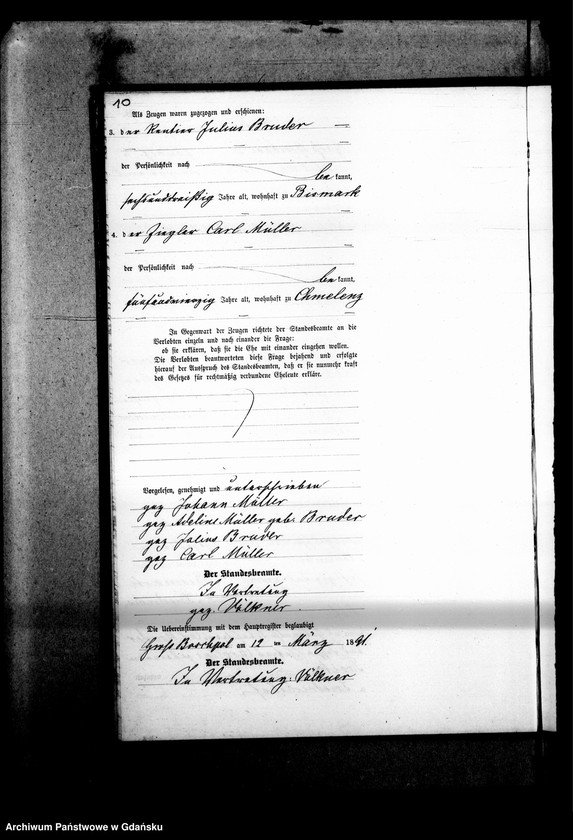 10
Als Zeugen waren zugezogen und erschienen:
3. der Rentier Julius Bruder
der Persönlichkeit nach
be kannt,
sechsunddreißig Jahre alt, wohnhaft zu Bismark
4. der Ziegler Carl Müller
der Persönlichkeit nach
be kannt,
fünfundvierzig Jahre alt, wohnhaft zu Chmelenz
In Gegenwart der Zeugen richtete der Standesbeamte an die
Verlobten einzeln und nach einander die Frage:
ob sie erklären, daß sie die Ehe mit einander eingehen wollen.
Die Verlobten beantworteten diese Frage bejahend und erfolgte
hierauf der Ausspruch des Standesbeamten, daß er sie nunmehr kraft
des Gesetzes für rechtmäßig verbundene Eheleute erkläre.
Vorgelesen, genehmigt und unterschrieben
gez Johann Müller
gez Adeline Müller geb. Bruder
gez Julius Bruder
gez Carl Müller
Der Standesbeamte.
In Vertretung
gez. Völkner.
Die Uebereinstimmung mit dem Hauptregister beglaubigt
Groß Boschpol am 12 ten März 1891.
Der Standesbeamte.
In Vertretung: Völkner
Archiwum Państwowe w Gdańsku